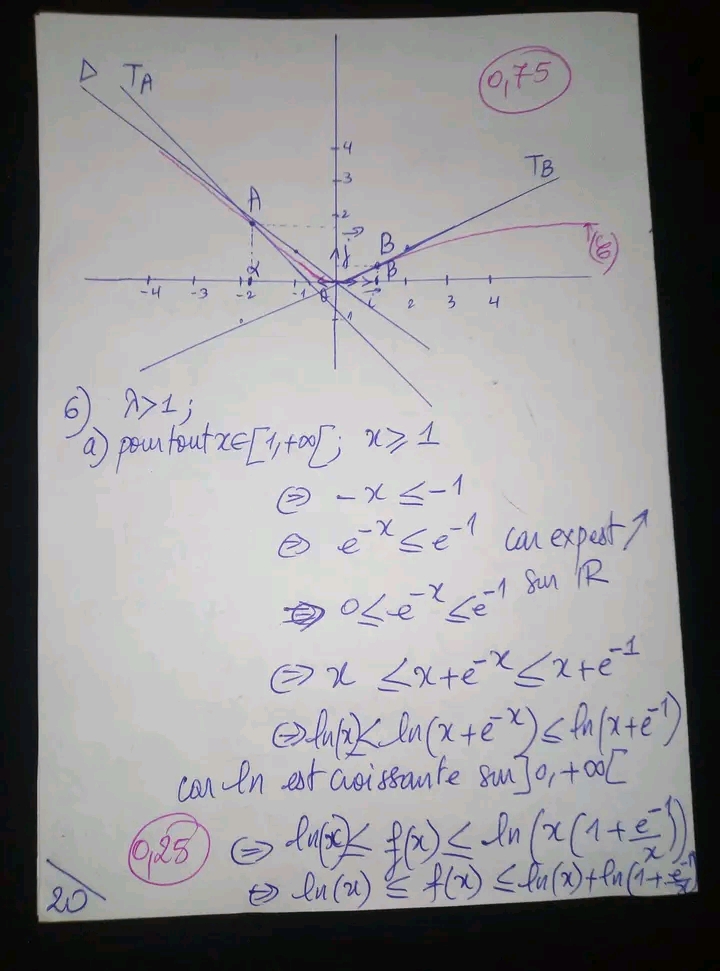 0,75
D TA
4
3
TB
A
2
j
B
(ℰ)
α
β
-4 -3 -2 -1 0 i 2 3 4
1
6) λ>1;
a) pour tout x∈[1,+∞[; x ⩾ 1
⇔ -x ≤ -1
⇔ e^{-x} ≤ e^{-1} car exp est ↗
sur ℝ
⇔ 0 ≤ e^{-x} ≤ e^{-1}
⇔ x ≤ x+e^{-x} ≤ x+e^{-1}
⇔ ln(x) ≤ ln(x+e^{-x}) ≤ ln(x+e^{-1})
car ln est croissante sur ]0,+∞[
0,25 ⇔ ln(x) ≤ f(x) ≤ ln(x(1+e^{-1}/x))
⇔ ln(x) ≤ f(x) ≤ ln(x)+ln(1+e^{-1}/x)
20